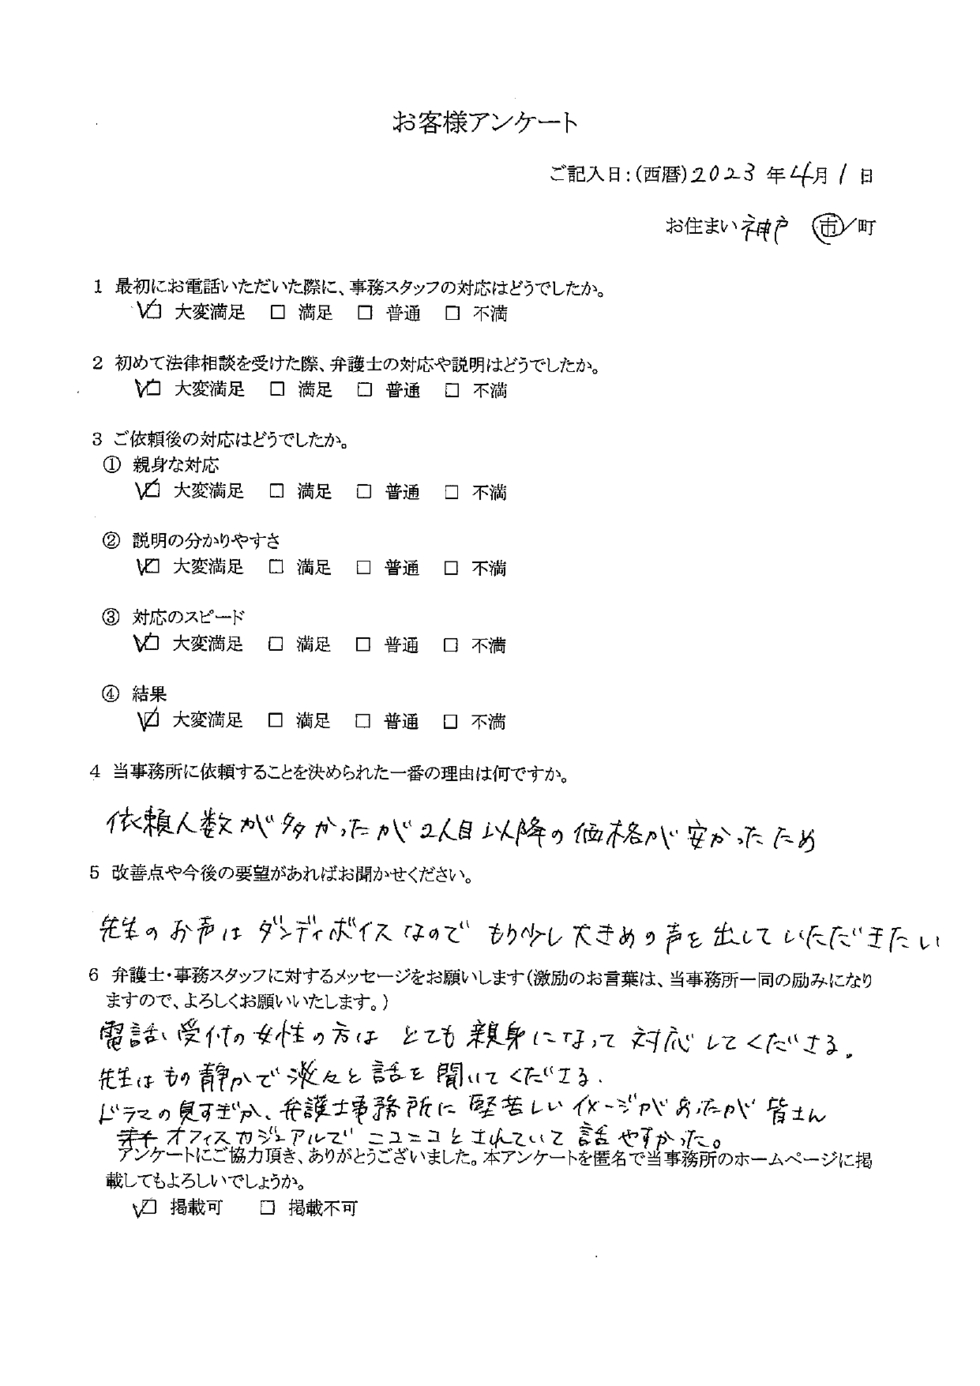 お客様アンケート
ご記入日:(西暦)2023年4月1日
お住まい神戸 市/町
1 最初にお電話いただいた際に、事務スタッフの対応はどうでしたか。
☑ 大変満足 □ 満足 □ 普通 □ 不満
2 初めて法律相談を受けた際、弁護士の対応や説明はどうでしたか。
☑ 大変満足 □ 満足 □ 普通 □ 不満
3 ご依頼後の対応はどうでしたか。
① 親身な対応
☑ 大変満足 □ 満足 □ 普通 □ 不満
② 説明の分かりやすさ
☑ 大変満足 □ 満足 □ 普通 □ 不満
③ 対応のスピード
☑ 大変満足 □ 満足 □ 普通 □ 不満
④ 結果
☑ 大変満足 □ 満足 □ 普通 □ 不満
4 当事務所に依頼することを決められた一番の理由は何ですか。
依頼人数が多かったが2人目以降の価格が安かったため
5 改善点や今後の要望があればお聞かせください。
先生のお声はダンディボイスなので もう少し大きめの声を出していただきたい
6 弁護士・事務スタッフに対するメッセージをお願いします(激励のお言葉は、当事務所一同の励みになり
ますので、よろしくお願いいたします。)
電話受付の女性の方は とても親身になって対応してくださる。
先生はもの静かで淡々と話を聞いてくださる。
ドラマの見すぎか、弁護士事務所に堅苦しいイメージがあったが皆さん
オフィスカジュアルでニコニコとされていて話やすかった。
アンケートにご協力頂き、ありがとうございました。本アンケートを匿名で当事務所のホームページに掲
載してもよろしいでしょうか。
☑ 掲載可 □ 掲載不可